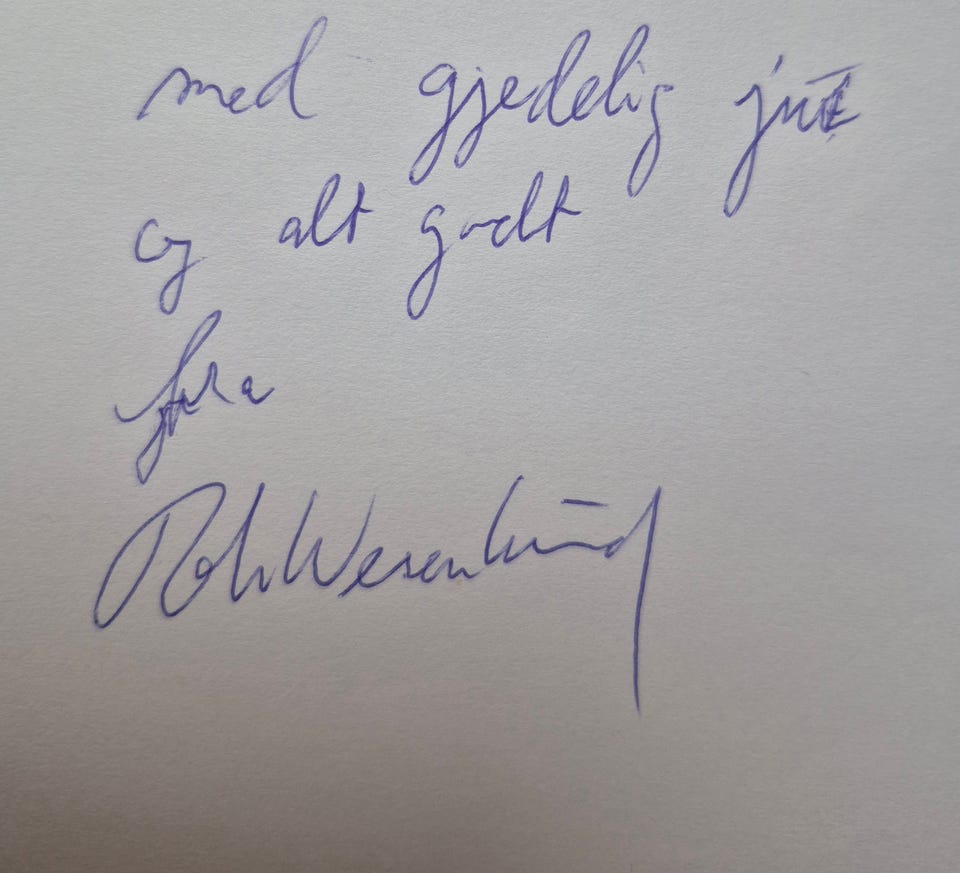 med gjedelig jul
og alt godt
fra
Rolv Wesenlund